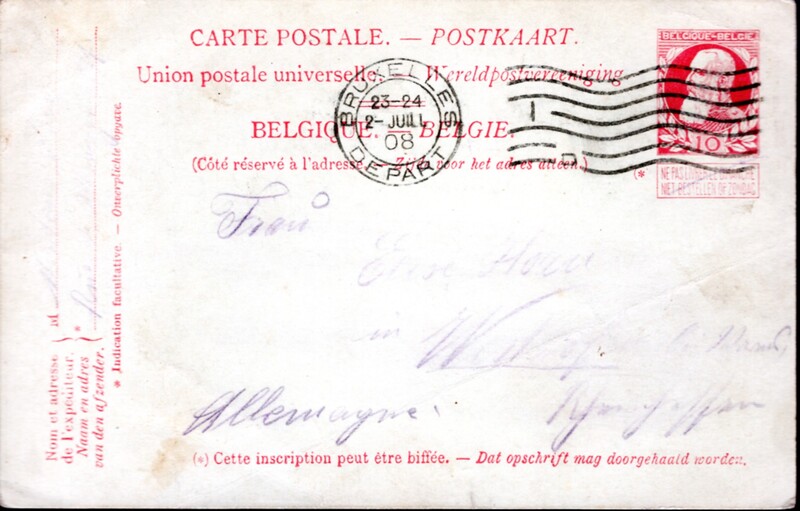 CARTE POSTALE. — POSTKAART.
Union postale universelle. — Wereldpostvereeniging.
BELGIQUE. — BELGIE.
(Côté réservé à l'adresse. — Zijde voor het adres alleen.)
BELGIQUE-BELGIE
10
(*) NE PAS LIVRER LE DIMANCHE
NIET BESTELLEN OP ZONDAG
BRUXELLES
23-24
2- JUIL
08
DEPART
Frau
in
Allemagne.
Rheinhessen
(*) Cette inscription peut être biffée. — Dat opschrift mag doorgehaald worden.
Nom et adresse
de l'expéditeur.
Naam en adres
van den afzender.
M
*
* Indication facultative. — Onverplichte opgave.